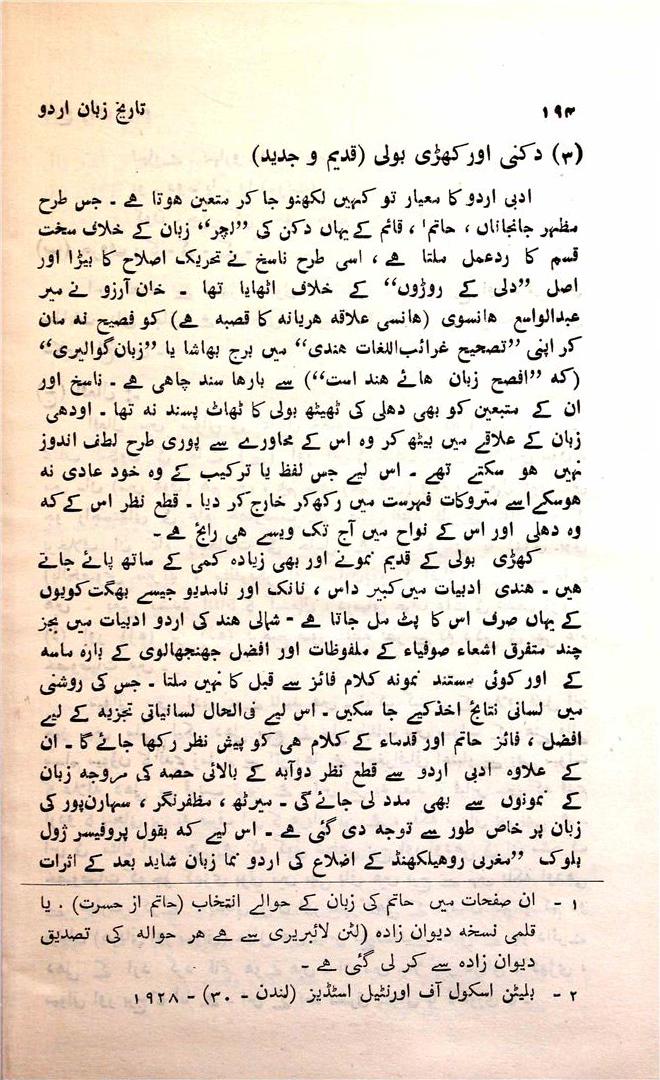 ۱۹۴ تاریخ زبان اردو
(۳) دکنی اور کھڑی بولی (قدیم و جدید)
ادبی اردو کا معیار تو کہیں لکھنو جا کر متعین ہوتا ہے ۔ جس طرح
مظہر جانجاناں ، حاتم۱ ، قائم کے یہاں دکن کی ”لچر“ زبان کے خلاف سخت
قسم کا ردعمل ملتا ہے ، اسی طرح ناسخ نے تحریک اصلاح کا بیڑا اور
اصل ”دلی کے روڑوں“ کے خلاف اٹھایا تھا ۔ خان آرزو نے میر
عبدالواسع ہانسوی (ہانسی علاقہ ہریانہ کا قصبہ ہے) کو فصیح نہ مان
کر اپنی ”تصحیح غرائب‌اللغات ہندی“ میں برج بھاشا یا ”زبان گوالیری“
(کہ ”افصح زبان ہائے ہند است“) سے بارہا سند چاہی ہے ۔ ناسخ اور
ان کے متبعین کو بھی دہلی کی ٹھیٹھ بولی کا ٹھاٹ پسند نہ تھا ۔ اودھی
زبان کے علاقے میں بیٹھ کر وہ اس کے محاورے سے پوری طرح لطف اندوز
نہیں ہو سکتے تھے ۔ اس لیے جس لفظ یا ترکیب کے وہ خود عادی نہ
ہوسکے اسے متروکات فہرست میں رکھ کر خارج کر دیا ۔ قطع نظر اس کے کہ
وہ دہلی اور اس کے نواح میں آج تک ویسے ہی رائج ہے ۔
کھڑی بولی کے قدیم نمونے اور بھی زیادہ کمی کے ساتھ پائے جاتے
ہیں ۔ ہندی ادبیات میں کبیر داس ، نانک اور نامدیو جیسے بھگت کویوں
کے یہاں صرف اس کا پٹ مل جاتا ہے ۔ شمالی ہند کی اردو ادبیات میں بجز
چند متفرق اشعاء صوفیاء کے ملفوظات اور افضل جھنجھالوی کے بارہ ماسہ
کے اور کوئی مستند نمونہ کلام فائز سے قبل کا نہیں ملتا ۔ جس کی روشنی
میں لسانی نتائج اخذ کیے جا سکیں ۔ اس لیے فی‌الحال لسانیاتی تجزیہ کے لیے
افضل ، فائز حاتم اور قدماء کے کلام ہی کو پیش نظر رکھا جائے گا ۔ ان
کے علاوہ ادبی اردو سے قطع نظر دوآبہ کے بالائی حصہ کی مروجہ زبان
کے نمونوں سے بھی مدد لی جائے گی ۔ میرٹھ ، مظفرنگر ، سہارن‌پور کی
زبان پر خاص طور سے توجہ دی گئی ہے ۔ اس لیے کہ بقول پروفیسر ژول
بلوک ”مغربی روھیلکھنڈ کے اضلاع کی اردو نما زبان شاید بعد کے اثرات
۱ ۔ ان صفحات میں حاتم کی زبان کے حوالے انتخاب (حاتم از حسرت) . یا
قلمی نسخہ دیوان زادہ (لٹن لائبریری سے ہے ہر حوالہ کی تصدیق
دیوان زادہ سے کر لی گئی ہے ۔
۲ ۔ بلیٹن اسکول آف اورنٹیل اسٹڈیز (لندن ۔ ۳۰) ۔ ۱۹۲۸